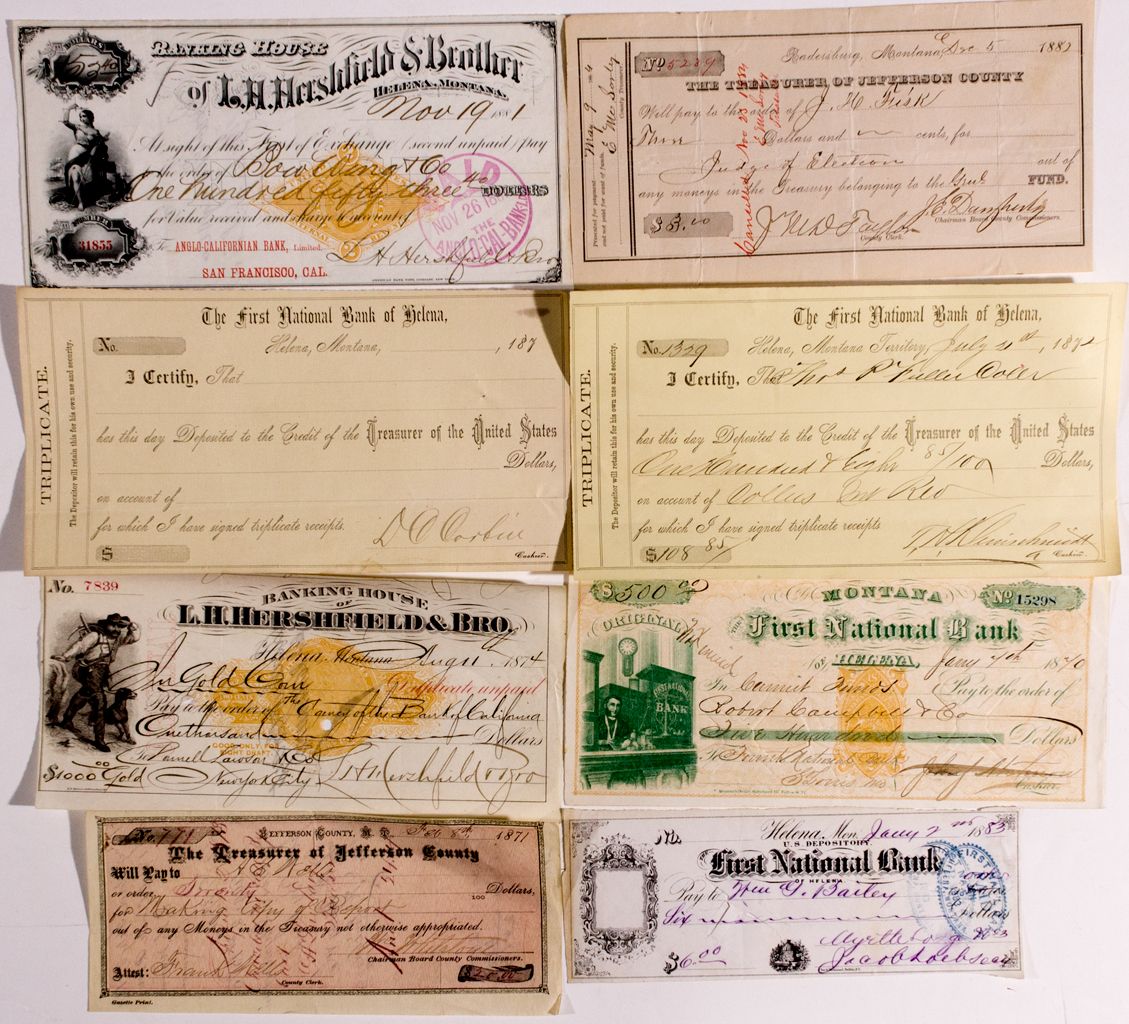 DOLLARS
BANKING HOUSE
of L.H. Hershfield & Brother
HELENA, MONTANA.
Nov 19 1881
At sight of this First of Exchange (second unpaid) Pay
to the order of
One hundred fifty three 40 DOLLARS
for Value received and charge to account of
To ANGLO-CALIFORNIAN BANK, Limited.
SAN FRANCISCO, CAL.
L H Hershfield & Bro
31855
PAID
NOV 26
THE
ANGLO-CAL. BANK
Radersburg, Montana, Dec 5 1882
No 5239
THE TREASURER OF JEFFERSON COUNTY
Will pay to the order of J. H. Fisk
Three Dollars and cents, for
Judge of Election out of
any moneys in the Treasury belonging to the FUND.
$3.00
Chairman Board County Commissioners.
County Clerk.
Presented for payment May 9
and not paid for want of funds.
County Treasurer.
Cancelled Nov 23
TRIPLICATE.
The Depositor will retain this for his own use and security.
The First National Bank of Helena,
No. Helena, Montana, , 187
I Certify, That
has this day Deposited to the Credit of the Treasurer of the United States
Dollars,
on account of
for which I have signed triplicate receipts.
D C Corbin
$ Cashier.
TRIPLICATE.
The Depositor will retain this for his own use and security.
The First National Bank of Helena,
No. 1329 Helena, Montana Territory, July , 187
I Certify, That Thos P Fuller Coller
has this day Deposited to the Credit of the Treasurer of the United States
One Hundred & Eight 85/100 Dollars,
on account of Collns Int Rev
for which I have signed triplicate receipts
T H Kleinschmidt
$108 85 Cashier.
No. 7839
BANKING HOUSE
OF
L.H. HERSHFIELD & BRO.
Helena, Montana Aug 11 1874
In Gold Coin Duplicate unpaid
Pay to the order of The Agency of the Bank of California
One thousand Dollars
GOOD ONLY FOR
SIGHT DRAFT
To Donnell Lawson & Co
$1000 Gold New York City L H Hershfield & Bro
$500 00 MONTANA No 15298
ORIGINAL
THE First National Bank
OF HELENA, Jany 4th 1870
FIRST NATIONAL BANK
In Current Funds Pay to the order of
Robert Campbell & Co
Five Hundred Dollars
To Fourth National Bank
St Louis Mo
Cashier
No. 771 JEFFERSON COUNTY, M. T. Feb 8th 1871
The Treasurer of Jefferson County
Will Pay to
or order, Twenty 100 Dollars,
for Making Copy of Report
out of any Moneys in the Treasury not otherwise appropriated.
Chairman Board County Commissioners.
Attest: Frank $20.00
County Clerk.
Gazette Print.
No. Helena, Mon. Jany 2nd 1883
U.S. DEPOSITORY.
First National Bank
OF HELENA
Pay to Wm G. Bailey
Six Dollars
$6.00